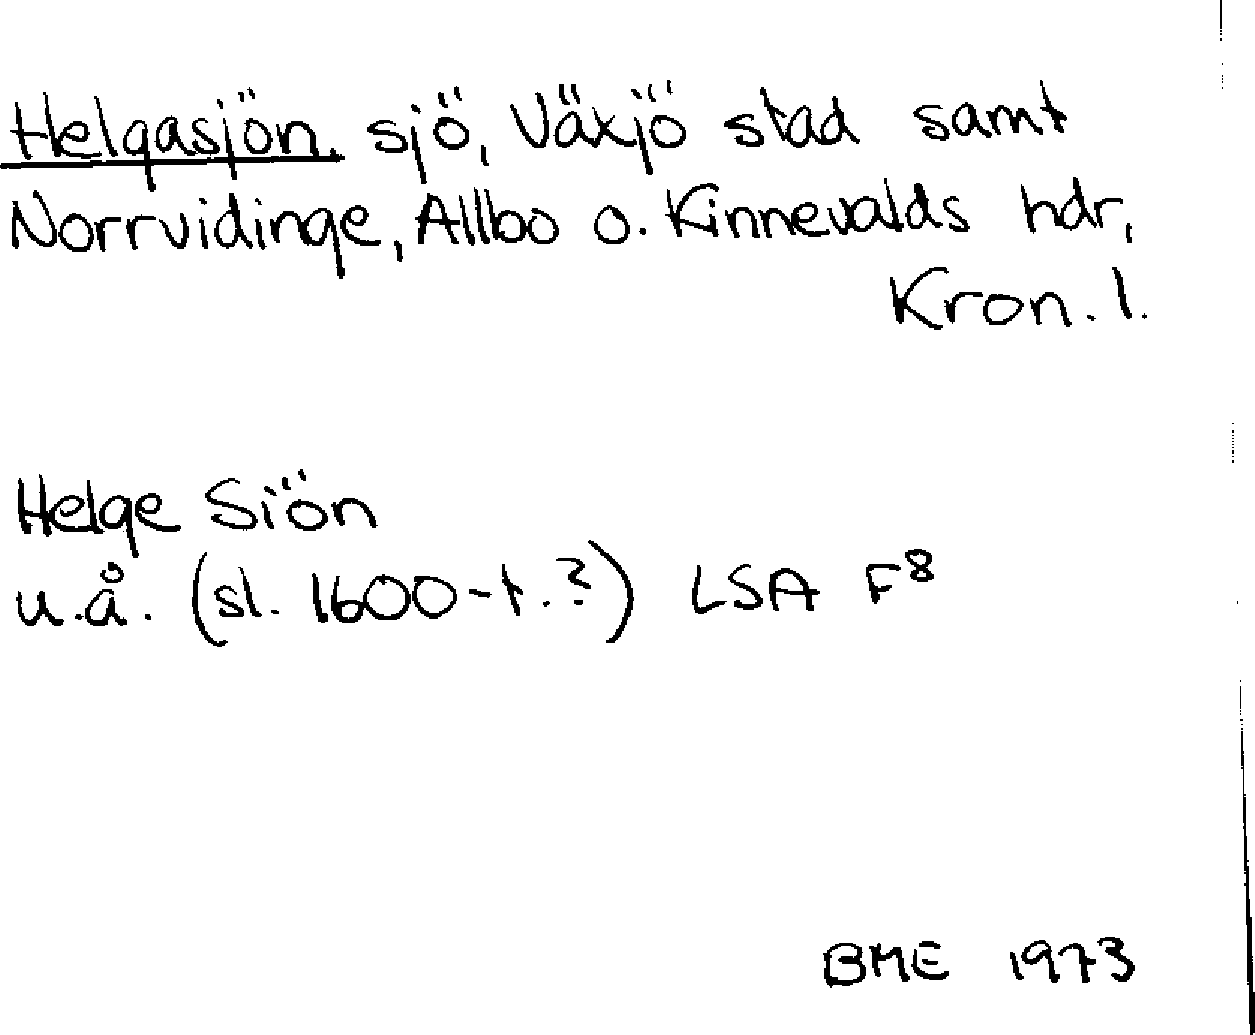 Helgasjön, sjö, Växjö stad samt
Norrvidinge, Allbo o. Kinnevalds hdr,
Kron. l.
Helge Siön
u.å. (sl. 1600-t.?) LSA F8
BME 1973